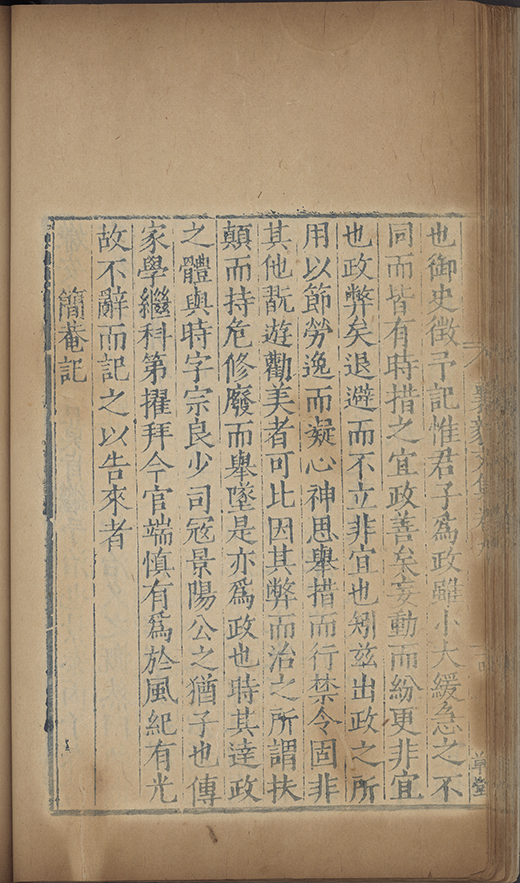 也御史徵予記惟君子爲政雖小大緩急之不
同而皆有時措之宜政善矣妄動而紛更非宜
也政弊矣退避而不立非宜也矧兹出政之所
用以節勞逸而凝心神思舉措而行禁令固非
其他翫遊勸美者可比因其弊而治之所謂扶
顛而持危修廢而舉墜是亦爲政也時其達政
之體與時字宗良少司冦景陽公之猶子也傳
家學繼科第擢拜今官端慎有爲於風紀有光
故不辭而記之以告來者
簡菴記